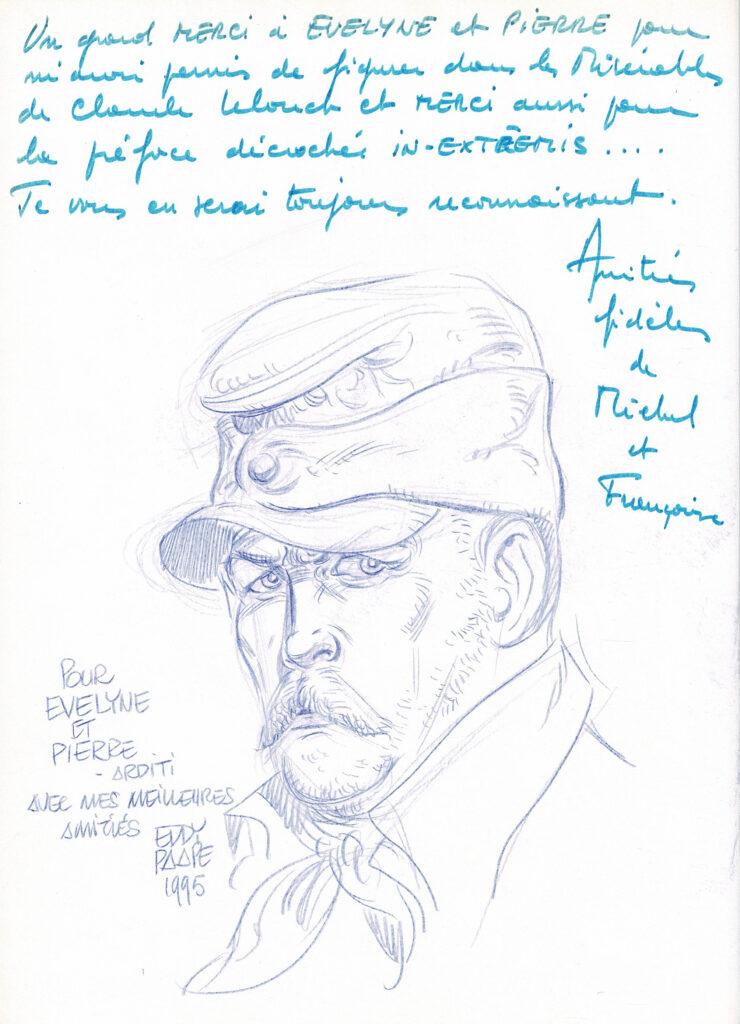 Un grand MERCI à EVELYNE et PIERRE pour
m'avoir permis de figurer dans les Misérables
de Claude Lelouch et MERCI aussi pour
la préface décrochée IN-EXTRÊMIS ....
Je vous en serai toujours reconnaissant.
Amitiés
fidèles
de
Michel
et
Françoise
POUR
EVELYNE
ET
PIERRE
- ARDITI
AVEC MES MEILLEURES
AMITIÉS
EDDY
PAAPE
1995